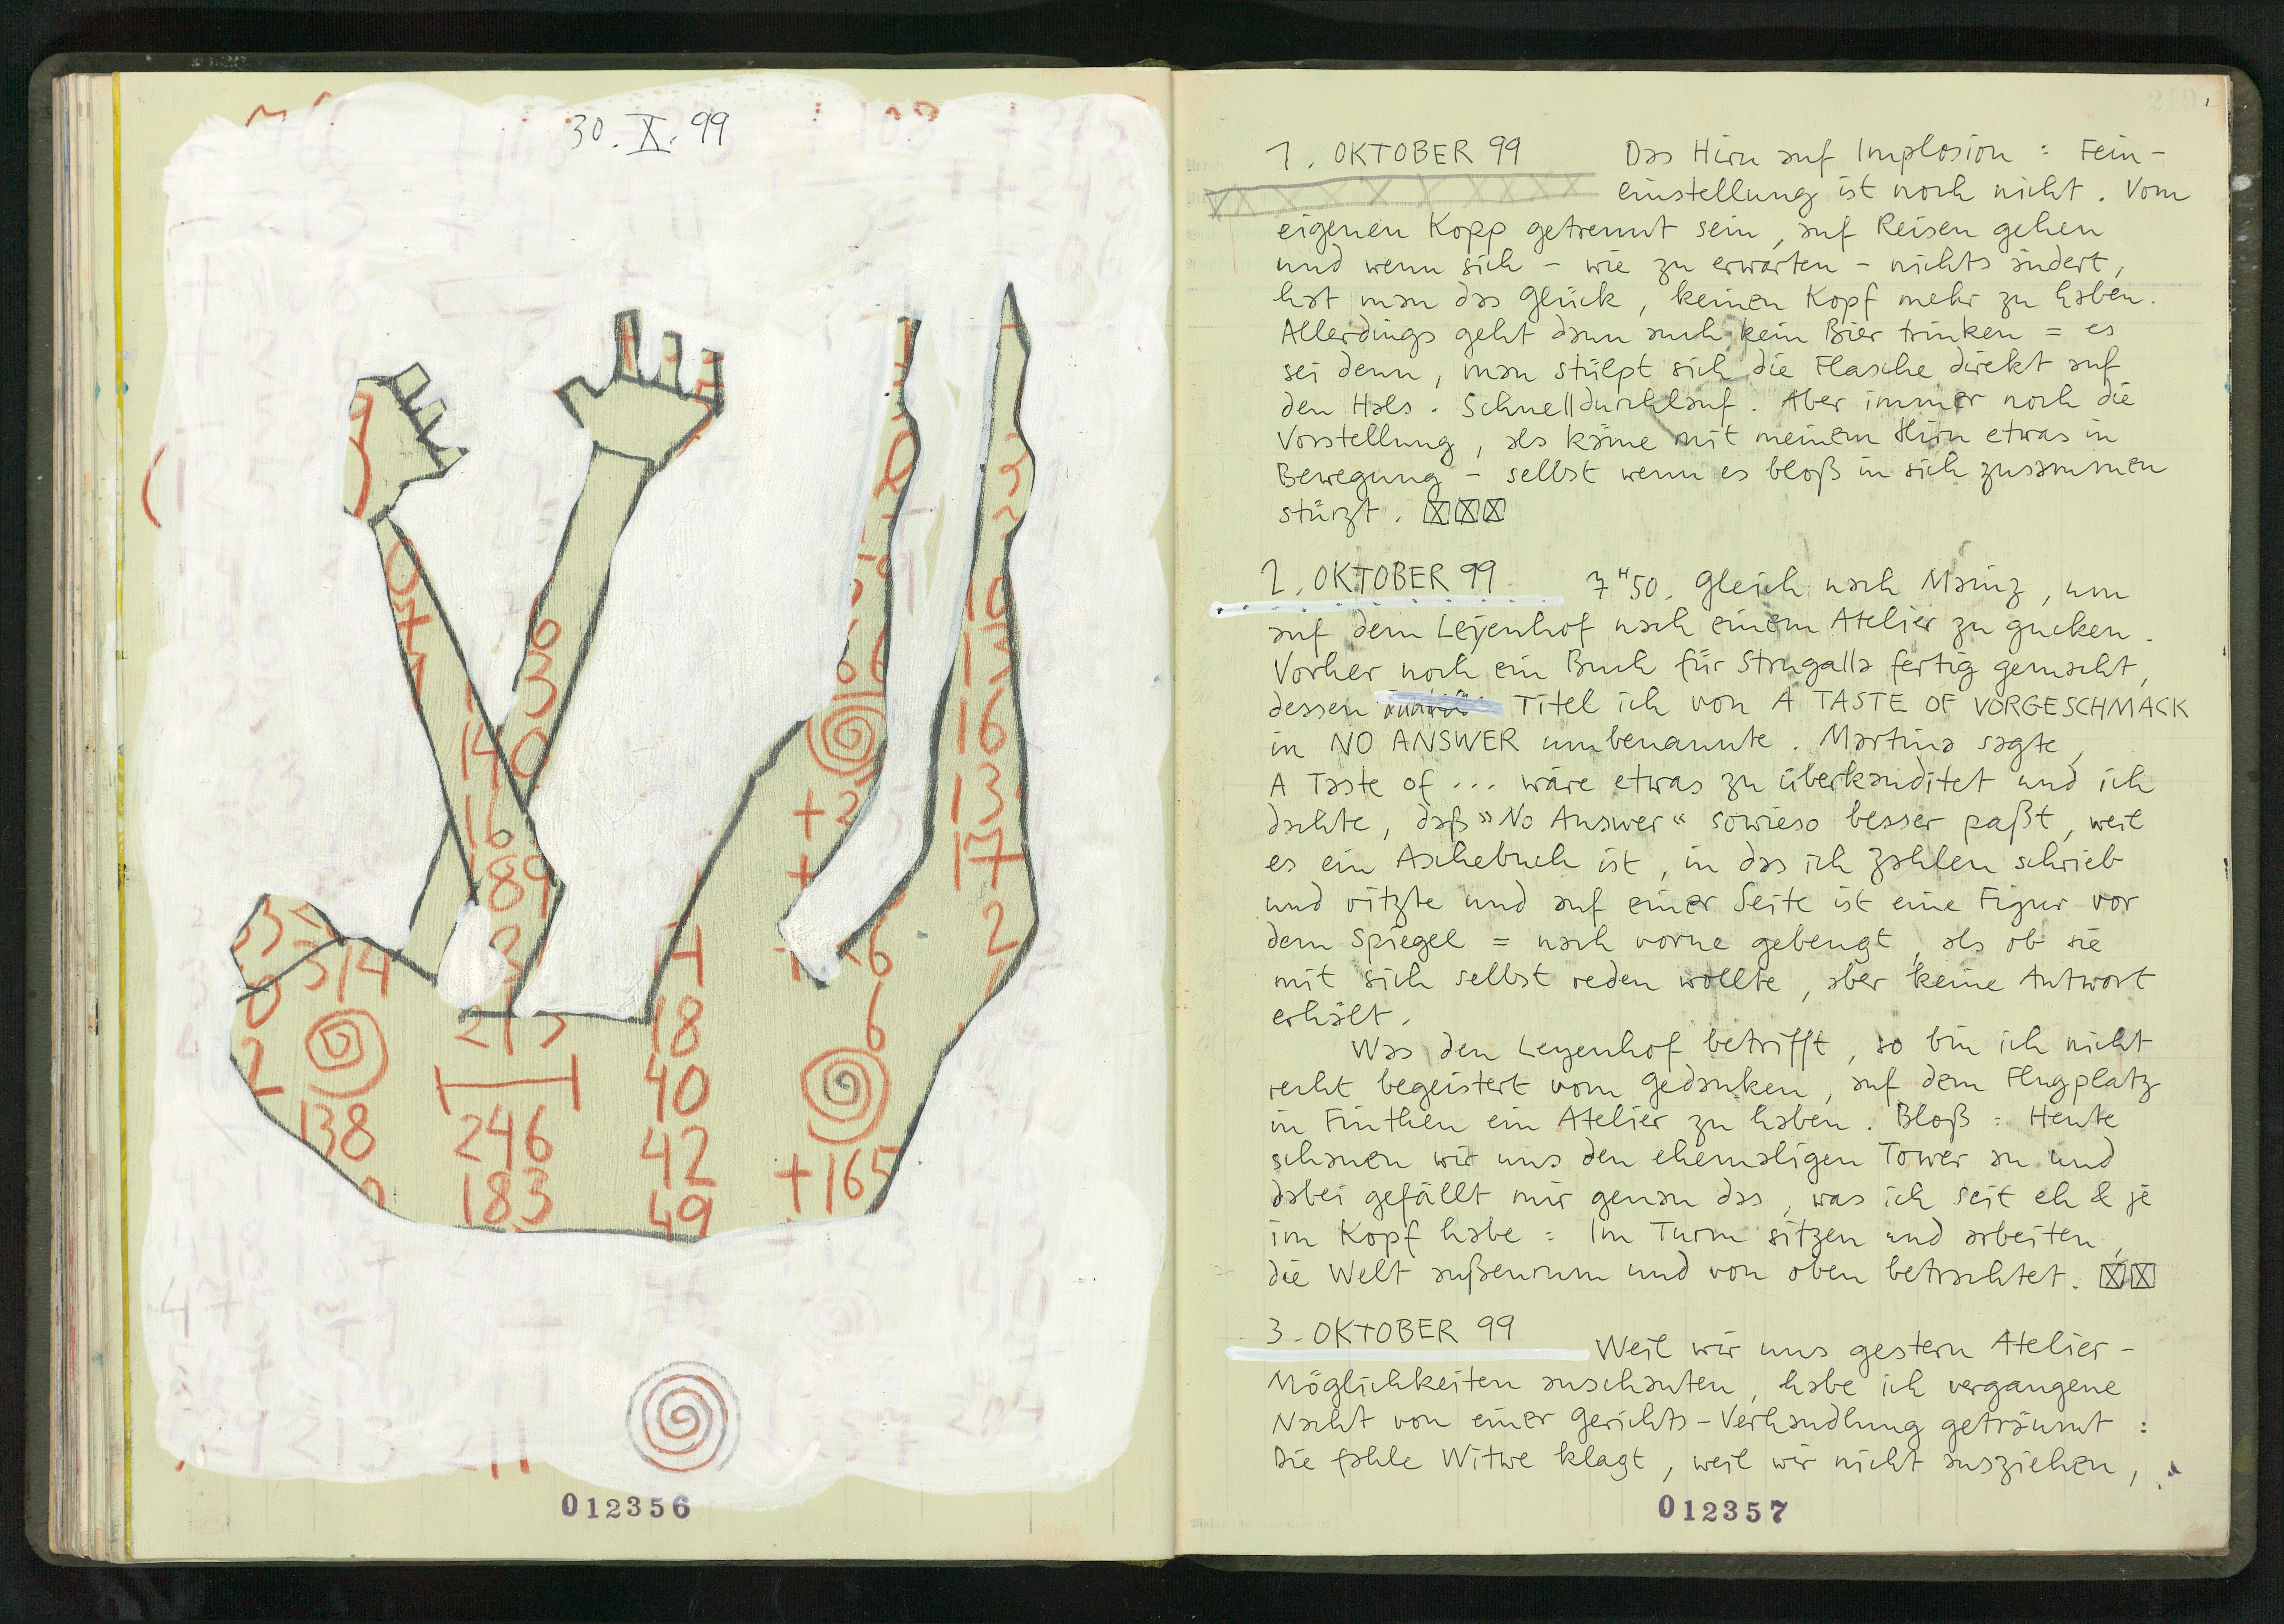 30. X. 99
0
7
6
3
140
16
189
3
314
0
2
138
213
246
183
4
18
40
42
49
66
+2
+
6
6
+165
3
2
10
13
16
13
17
2
012356
1. OKTOBER 99 Das Hirn auf Implosion : Fein-
einstellung ist noch nicht. Vom
eigenen Kopp getrennt sein, auf Reisen gehen
und wenn sich - wie zu erwarten - nichts ändert,
hat man das Glück, keinen Kopf mehr zu haben.
Allerdings geht dann auch kein Bier trinken = es
sei denn, man stülpt sich die Flasche direkt auf
den Hals. Schnelldurchlauf. Aber immer noch die
Vorstellung, als käme mit meinem Hirn etwas in
Bewegung - selbst wenn es bloß in sich zusammen
stürzt.
2. OKTOBER 99 7H50. Gleich nach Mainz, um
auf dem Leyenhof nach einem Atelier zu gucken.
Vorher noch ein Buch für Strugalla fertig gemacht,
dessen Titel ich von A TASTE OF VORGESCHMACK
in NO ANSWER umbenannte. Martina sagte,
A Taste of ... wäre etwas zu überkanditet und ich
dachte, daß »No Answer« sowieso besser paßt, weil
es ein Aschebuch ist, in das ich Zahlen schrieb
und ritzte und auf einer Seite ist eine Figur vor
dem Spiegel = nach vorne gebeugt, als ob sie
mit sich selbst reden wollte, aber keine Antwort
erhält.
Was den Leyenhof betrifft, so bin ich nicht
recht begeistert vom Gedanken, auf dem Flugplatz
in Finthen ein Atelier zu haben. Bloß : Heute
schauen wir uns den ehemaligen Tower an und
dabei gefällt mir genau das, was ich seit eh & je
im Kopf habe : Im Turm sitzen und arbeiten,
die Welt außenrum und von oben betrachtet.
3. OKTOBER 99 Weil wir uns gestern Atelier-
Möglichkeiten anschauten, habe ich vergangene
Nacht von einer Gerichts-Verhandlung geträumt :
Die fahle Witwe klagt, weil wir nicht ausziehen,
012357